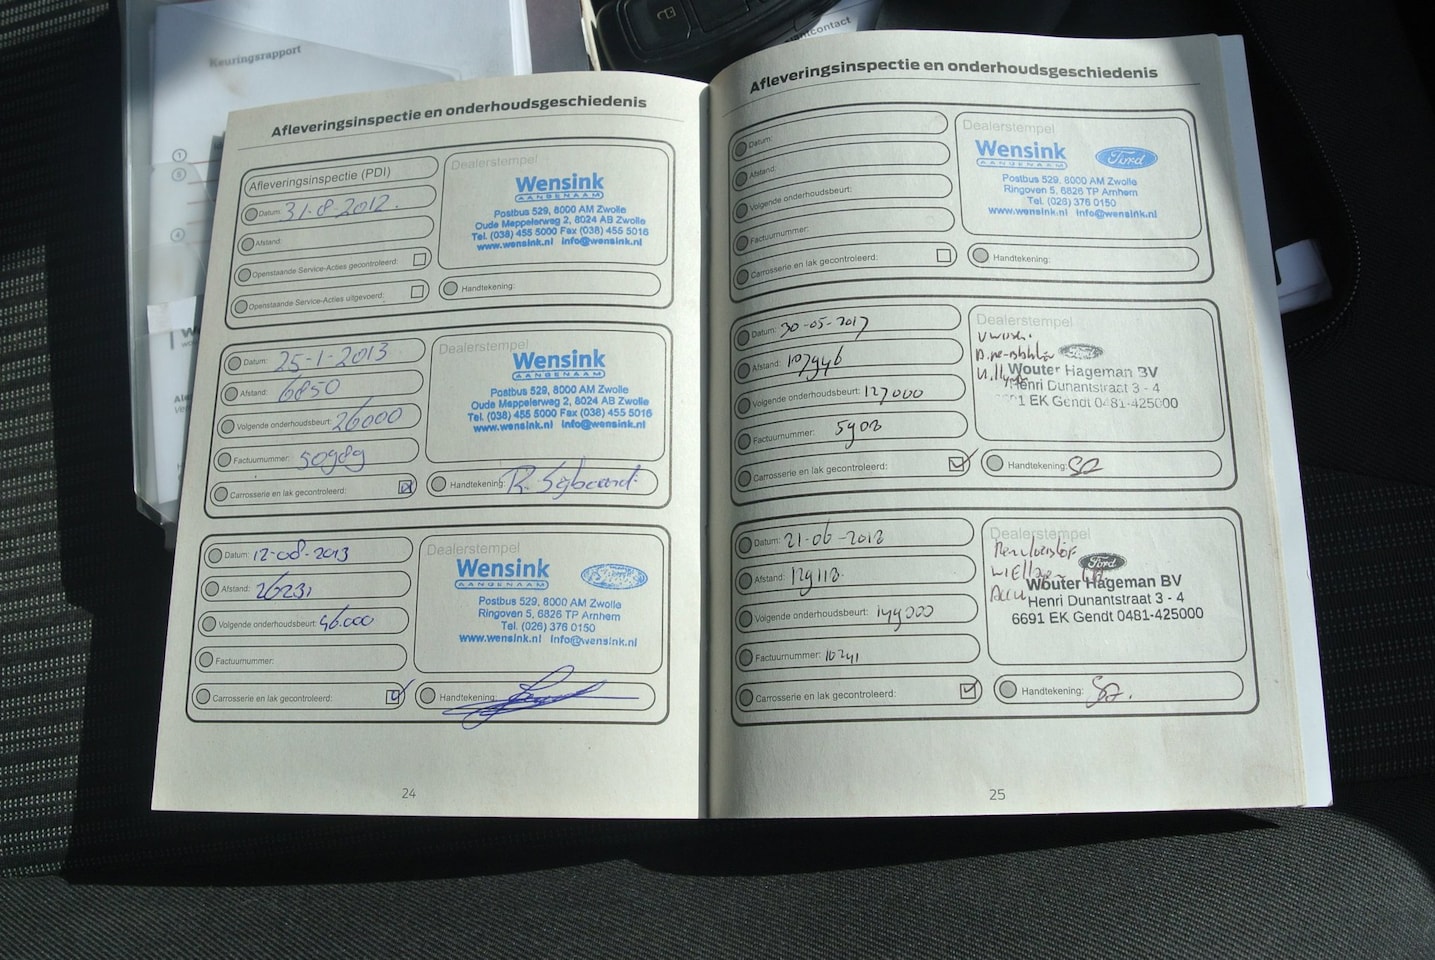 Keuringsrapport
Afleveringsinspectie en onderhoudsgeschiedenis
Afleveringsinspectie (PDI)
Datum: 31-8-2012
Afstand:
Openstaande Service-Acties gecontroleerd:
Openstaande Service-Acties uitgevoerd:
Dealerstempel
Wensink
AANGENAAM
Postbus 529, 8000 AM Zwolle
Oude Meppelerweg 2, 8024 AB Zwolle
Tel. (038) 455 5000 Fax (038) 455 5016
www.wensink.nl info@wensink.nl
Handtekening:
Datum: 25-1-2013
Afstand: 6850
Volgende onderhoudsbeurt: 26000
Factuurnummer: 50989
Carrosserie en lak gecontroleerd:
Dealerstempel
Wensink
AANGENAAM
Postbus 529, 8000 AM Zwolle
Oude Meppelerweg 2, 8024 AB Zwolle
Tel. (038) 455 5000 Fax (038) 455 5016
www.wensink.nl info@wensink.nl
Handtekening:
Datum: 12-08-2013
Afstand: 26231
Volgende onderhoudsbeurt: 46.000
Factuurnummer:
Carrosserie en lak gecontroleerd:
Dealerstempel
Wensink
AANGENAAM
Postbus 529, 8000 AM Zwolle
Ringoven 5, 6826 TP Arnhem
Tel. (026) 376 0150
www.wensink.nl info@wensink.nl
Handtekening:
24
Afleveringsinspectie en onderhoudsgeschiedenis
Datum:
Afstand:
Volgende onderhoudsbeurt:
Factuurnummer:
Carrosserie en lak gecontroleerd:
Dealerstempel
Wensink Ford
AANGENAAM
Postbus 529, 8000 AM Zwolle
Ringoven 5, 6826 TP Arnhem
Tel. (026) 376 0150
www.wensink.nl info@wensink.nl
Handtekening:
Datum: 30-05-2017
Afstand: 107946
Volgende onderhoudsbeurt: 127000
Factuurnummer: 5903
Carrosserie en lak gecontroleerd:
Dealerstempel
Ford
Wouter Hageman BV
Henri Dunantstraat 3 - 4
6691 EK Gendt 0481-425000
Handtekening:
Datum: 21-06-2018
Afstand: 129113
Volgende onderhoudsbeurt: 149000
Factuurnummer: 10241
Carrosserie en lak gecontroleerd:
Dealerstempel
Ford
Wouter Hageman BV
Henri Dunantstraat 3 - 4
6691 EK Gendt 0481-425000
Handtekening:
25